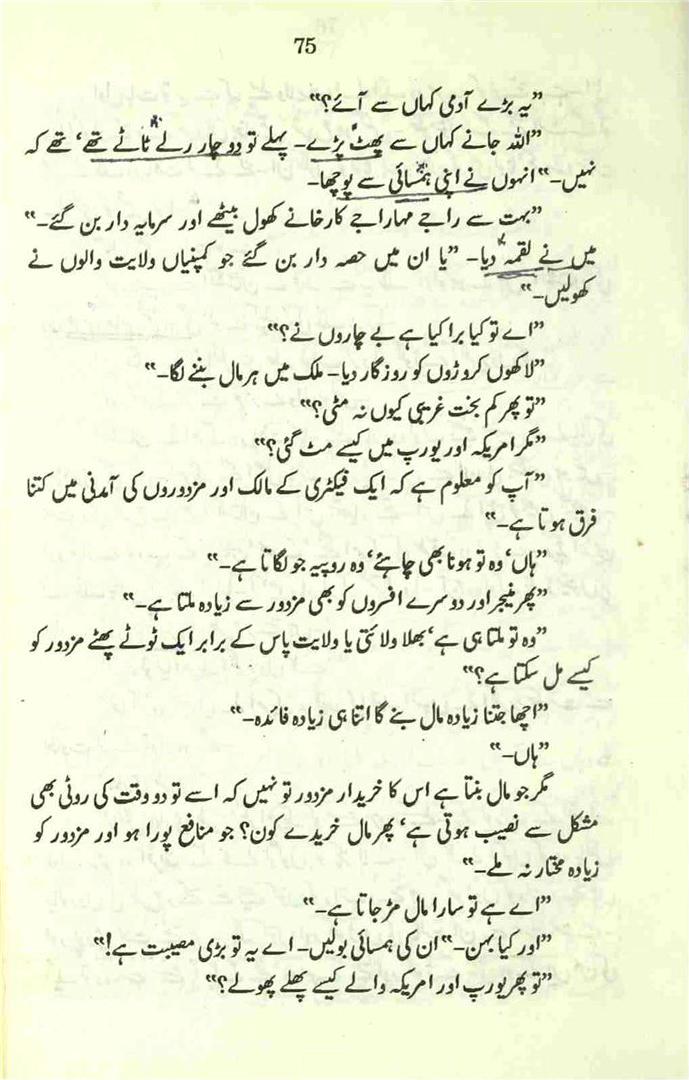 75
”یہ بڑے آدمی کہاں سے آئے؟“
”اللہ جانے کہاں سے پھٹ پڑے۔ پہلے تو دو چار رلے ٹاٹے تھے‘ تھے کہ
نہیں۔“ انہوں نے اپنی ہمسائی سے پوچھا۔
”بہت سے راجے مہاراجے کارخانے کھول بیٹھے اور سرمایہ دار بن گئے۔“
میں نے لقمہ دیا۔ ”یا ان میں حصہ دار بن گئے جو کمپنیاں ولایت والوں نے
کھولیں۔“
”اے تو کیا برا کیا ہے بے چاروں نے؟“
”لاکھوں کروڑوں کو روزگار دیا۔ ملک میں ہر مال بننے لگا۔“
”تو پھر کم بخت غریبی کیوں نہ مٹی؟“
”مگر امریکہ اور یورپ میں کیسے مٹ گئی؟“
”آپ کو معلوم ہے کہ ایک فیکٹری کے مالک اور مزدوروں کی آمدنی میں کتنا
فرق ہوتا ہے۔“
”ہاں‘ وہ تو ہونا بھی چاہئے‘ وہ روپیہ جو لگاتا ہے۔“
”پھر منیجر اور دوسرے افسروں کو بھی مزدور سے زیادہ ملتا ہے۔“
”وہ تو ملتا ہی ہے‘ بھلا ولائتی یا ولایت پاس کے برابر ایک ٹوٹے پھٹے مزدور کو
کیسے مل سکتا ہے؟“
”اچھا جتنا زیادہ مال بنے گا اتنا ہی زیادہ فائدہ۔“
”ہاں۔“
مگر جو مال بنتا ہے اس کا خریدار مزدور تو نہیں کہ اسے تو دو وقت کی روٹی بھی
مشکل سے نصیب ہوتی ہے‘ پھر مال خریدے کون؟ جو منافع پورا ہو اور مزدور کو
زیادہ مختار نہ ملے۔“
”اے ہے تو سارا مال سڑ جاتا ہے۔“
”اور کیا بہن۔“ ان کی ہمسائی بولیں۔ اے یہ تو بڑی مصیبت ہے!“
”تو پھر یورپ اور امریکہ والے کیسے پھلے پھولے؟“